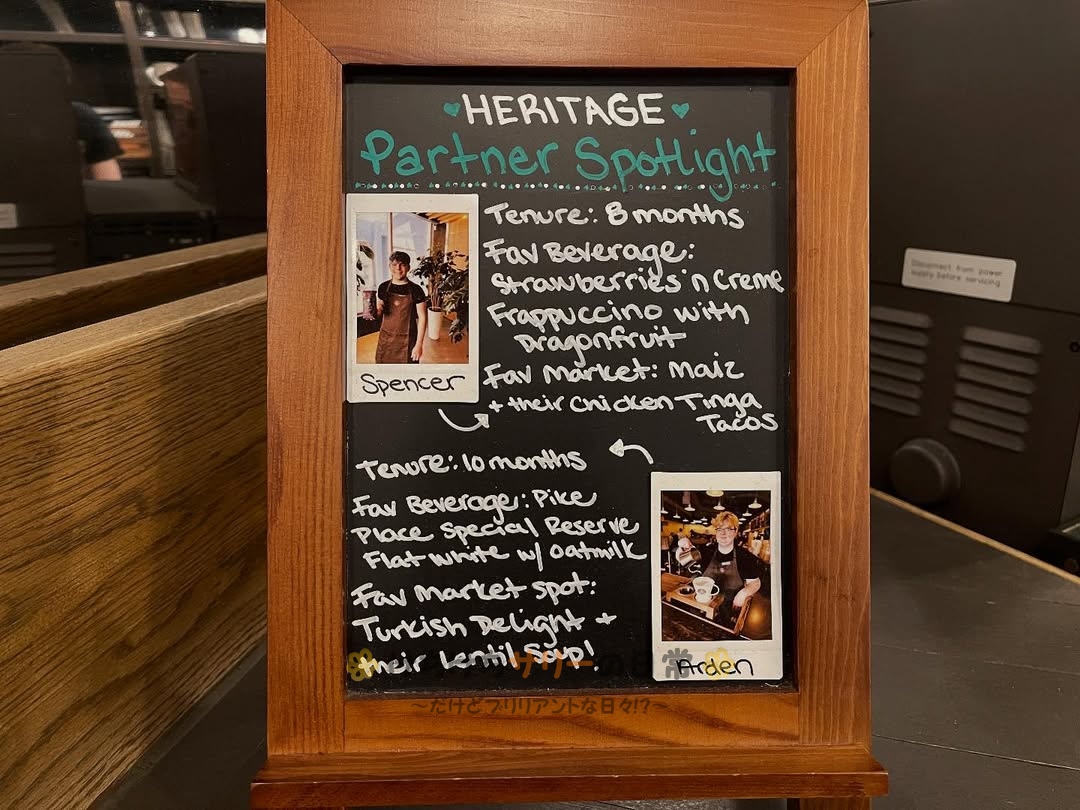 HERITAGE
Partner Spotlight
Tenure: 8 months
Fav Beverage:
Strawberries 'n Creme
Frappuccino with
Dragonfruit
Fav Market: Maiz
+ their Chicken Tinga
Tacos
Spencer
Tenure: 10 months
Fav Beverage: Pike
Place Special Reserve
Flat white w/ oatmilk
Fav Market spot:
Turkish Delight +
their Lentil Soup!
Arden
サリーの日常
〜だけどブリリアントな日々!?〜
Disconnect from power
supply before servicing